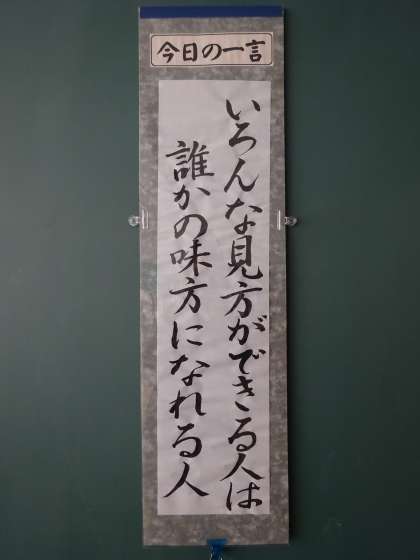 今日の一言
いろんな見方ができる人は
誰かの味方になれる人